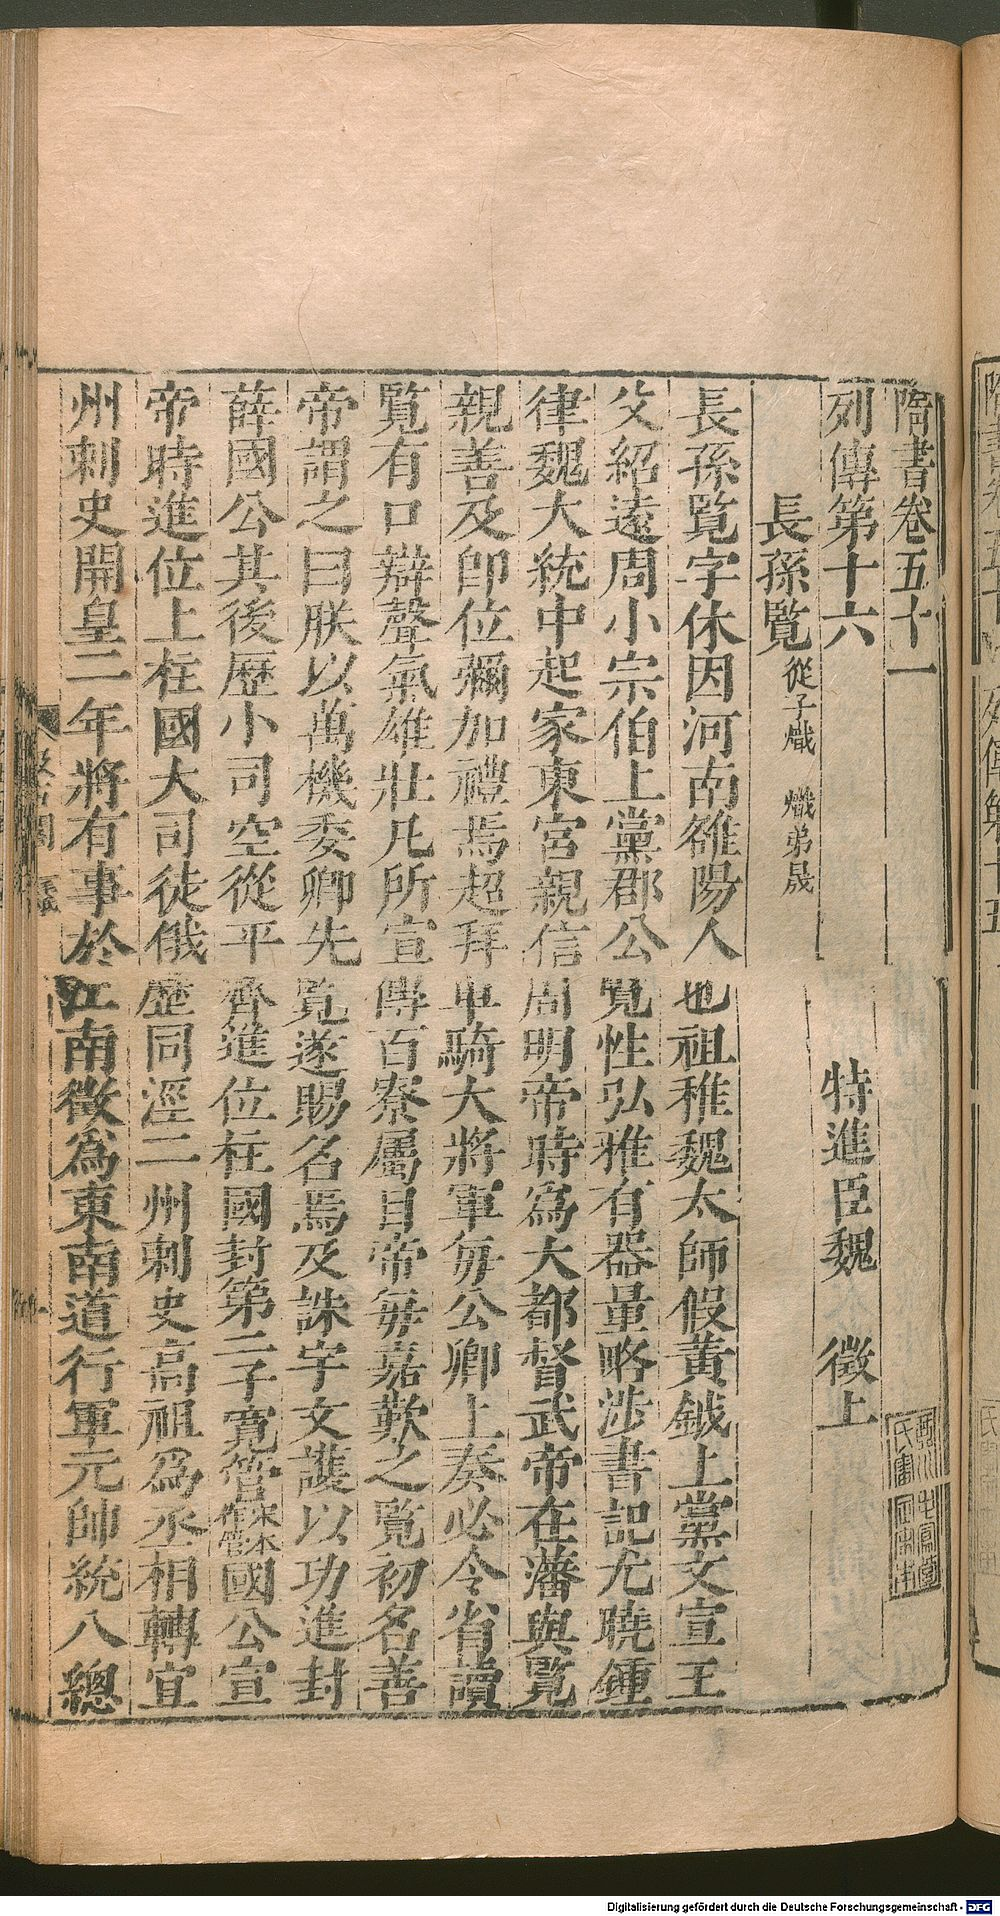 隋書卷五十一
列傳第十六 特進臣魏 徵上
長孫覽 從子熾 熾弟晟
長孫覽字休因河南雒陽人也祖稚魏太師假黃鉞上黨文宣王
父紹遠周小宗伯上黨郡公覽性弘雅有器量略涉書記尤曉鍾
律魏大統中起家東宮親信周明帝時爲大都督武帝在藩與覽
親善及卽位彌加禮焉超拜車騎大將軍每公卿上奏必令省讀
覽有口辯聲氣雄壯凡所宣傳百寮屬目帝每嘉歎之覽初名善
帝謂之曰朕以萬機委卿先覽遂賜名焉及誅宇文護以功進封
薛國公其後歷小司空從平齊進位柱國封第二子寬管宋本作管國公宣
帝時進位上柱國大司徒俄歷同涇二州刺史高祖爲丞相轉宜
州刺史開皇二年將有事於江南徵爲東南道行軍元帥統八總
Digitalisierung gefördert durch die Deutsche Forschungsgemeinschaft - DFG